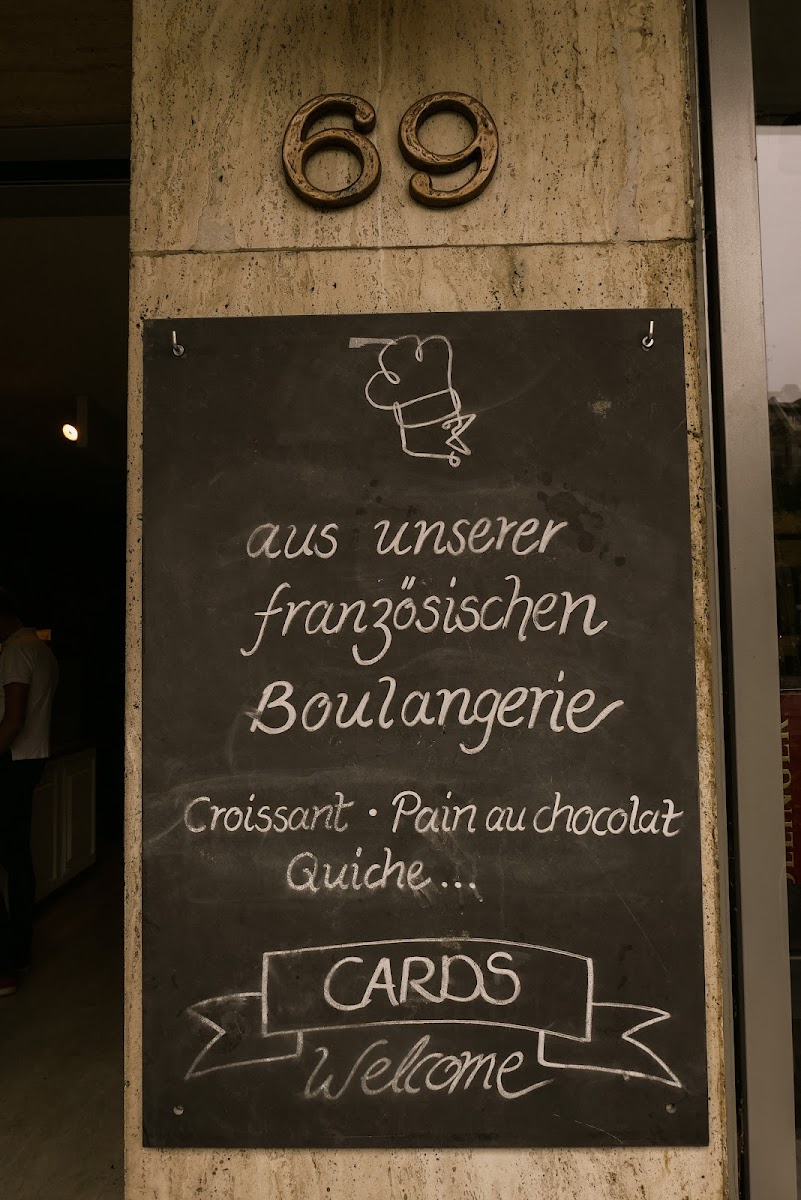 69
aus unserer
französischen
Boulangerie
Croissant · Pain au chocolat
Quiche...
CARDS
Welcome